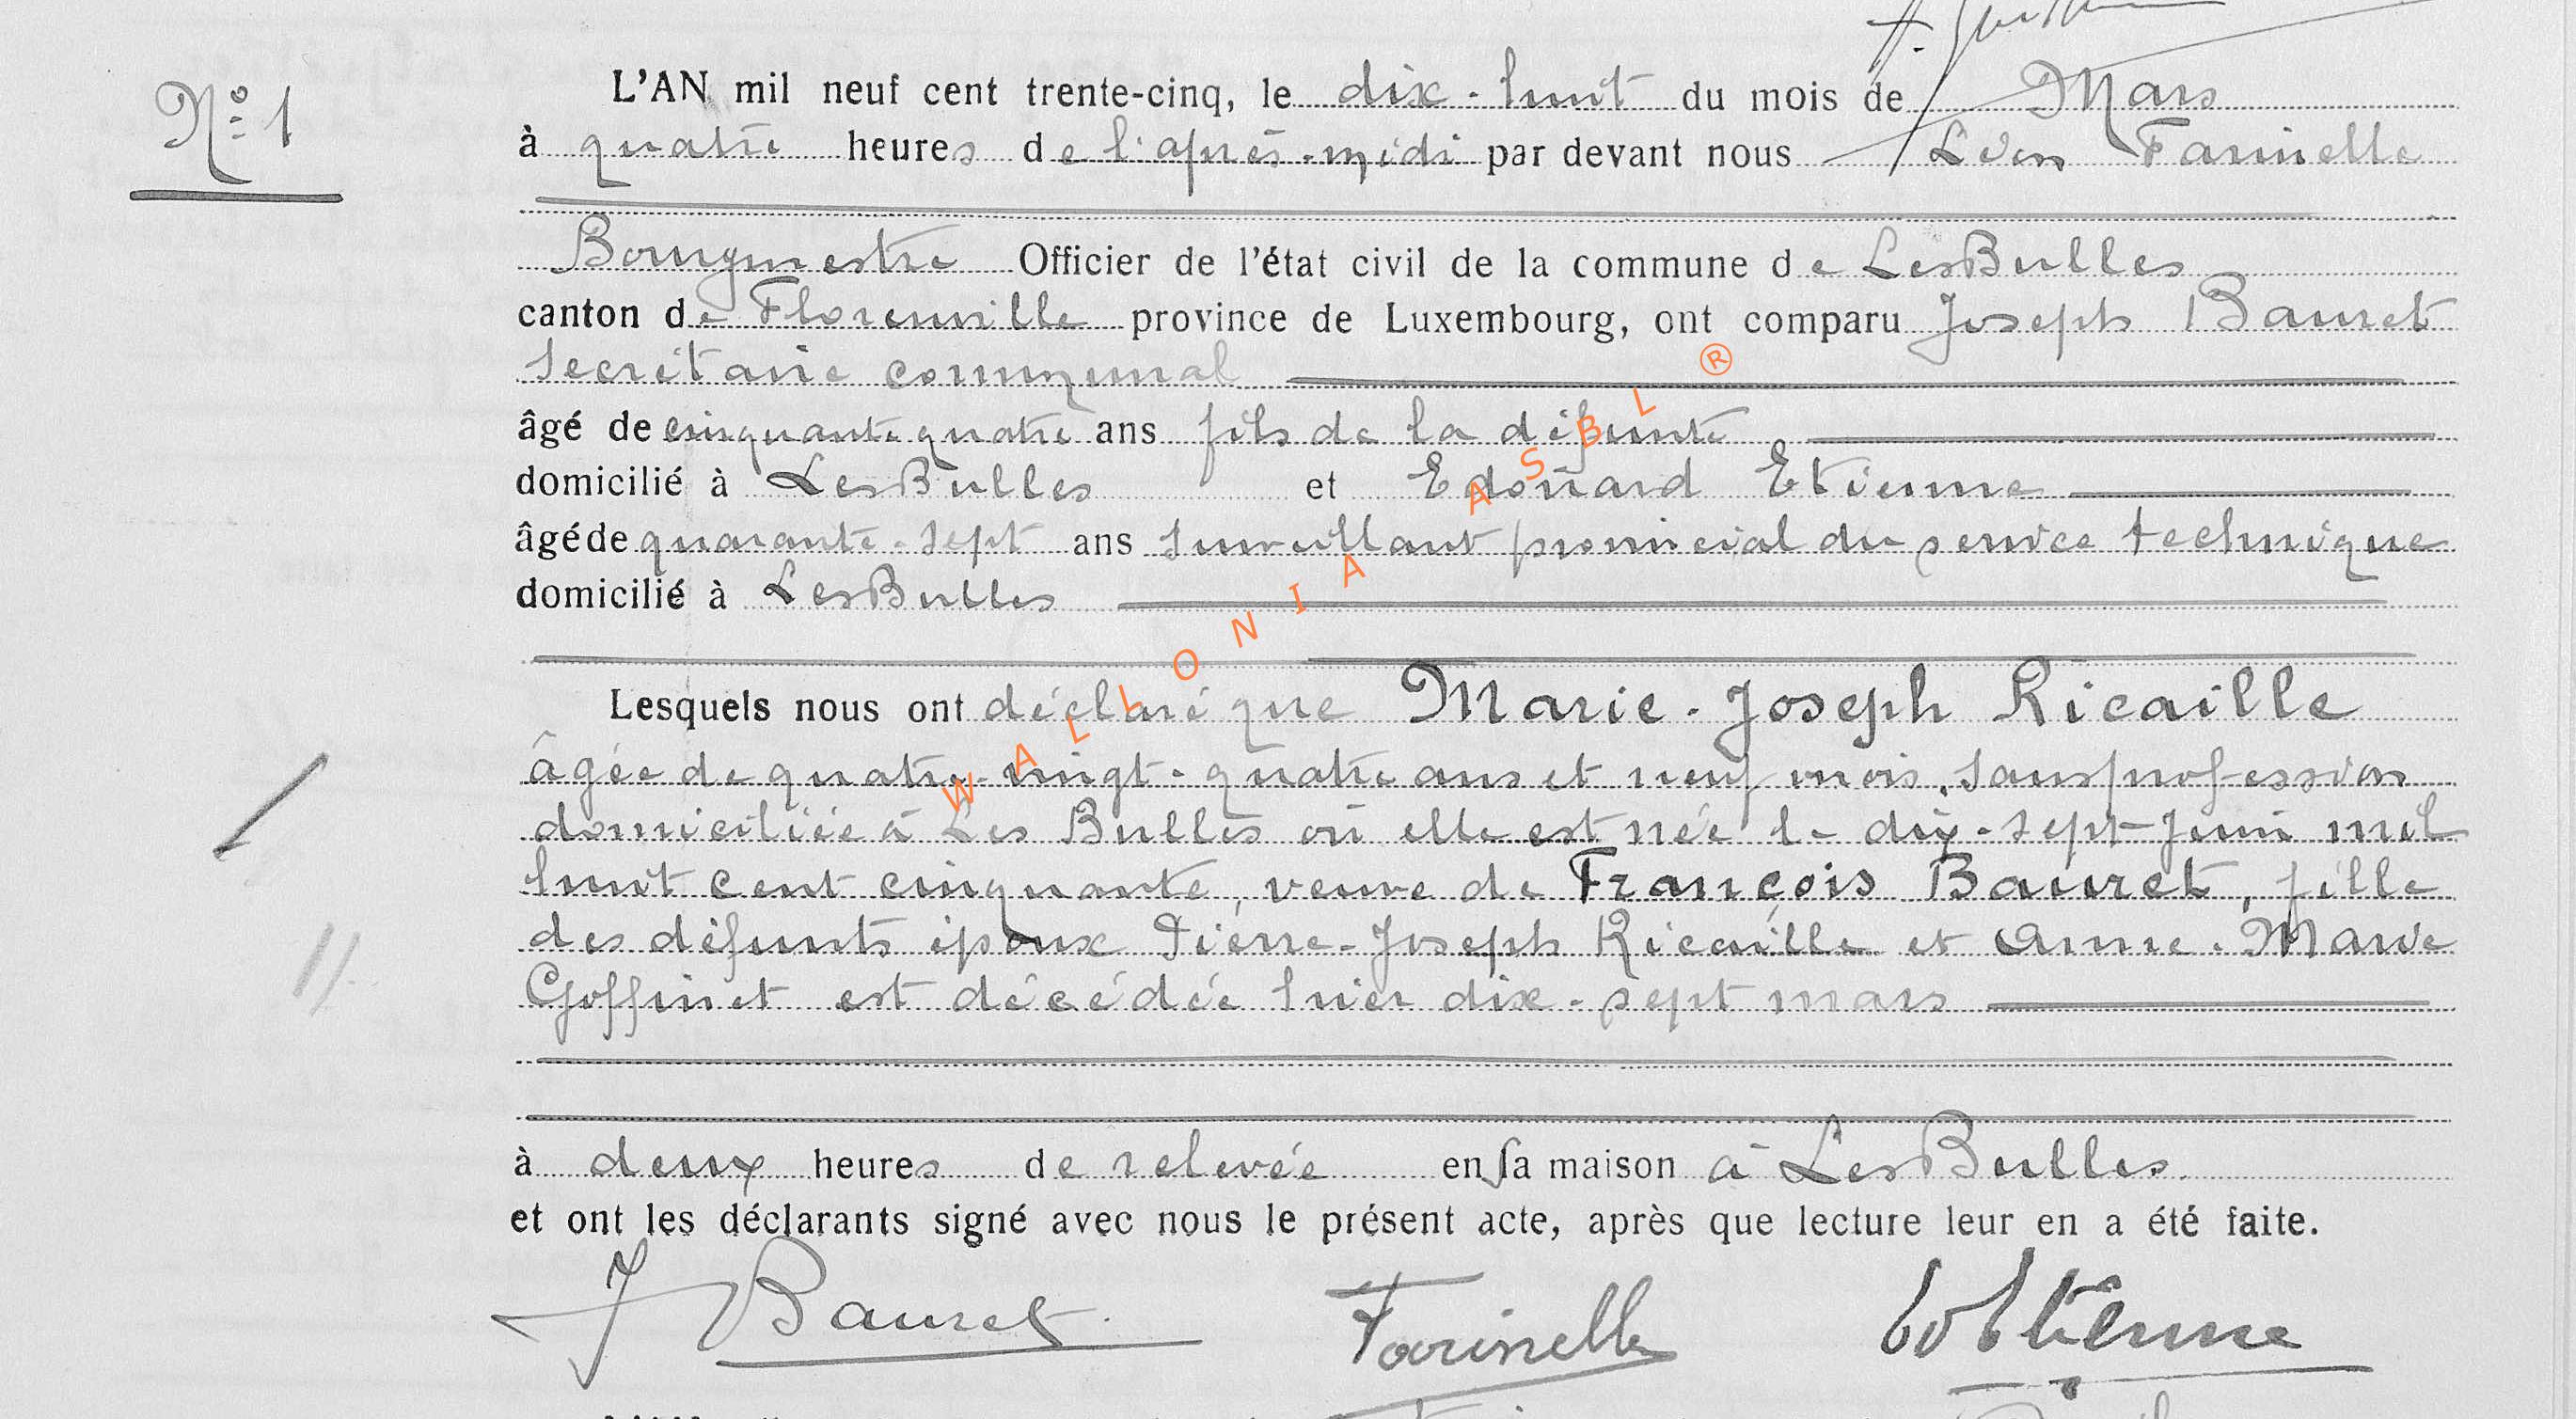 Nº 1
L'AN mil neuf cent trente-cinq, le dix-huit du mois de Mars
à quatre heures de l'après-midi par devant nous Léon Farinelle
Bourgmestre Officier de l'état civil de la commune de LesBulles
canton de Florenville province de Luxembourg, ont comparu Joseph Bauret
secrétaire communal
âgé de cinquante quatre ans fils de la défunte
domicilié à LesBulles et Edouard Etienne
âgé de quarante-sept ans surveillant provincial du service technique
domicilié à LesBulles
Lesquels nous ont déclaré que Marie-Joseph Ricaille
âgée de quatre-vingt-quatre ans et neuf mois, sans profession
domiciliée à Les Bulles où elle est née le dix-sept Juin mil
huit cent cinquante, veuve de François Bauret, fille
des défunts époux Pierre-Joseph Ricaille et Anne-Marie
Goffinet est décédée hier dix-sept mars
à deux heures de relevée en sa maison à LesBulles.
et ont les déclarants signé avec nous le présent acte, après que lecture leur en a été faite.
J Bauret Farinelle Ed Etienne
WALLONIA ASBL ®